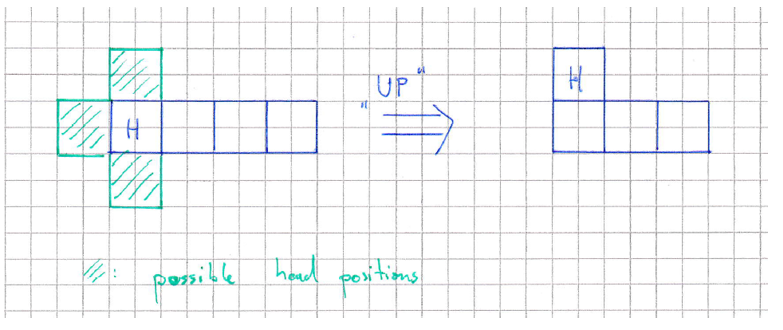 H
„UP“
H
: possible head positions